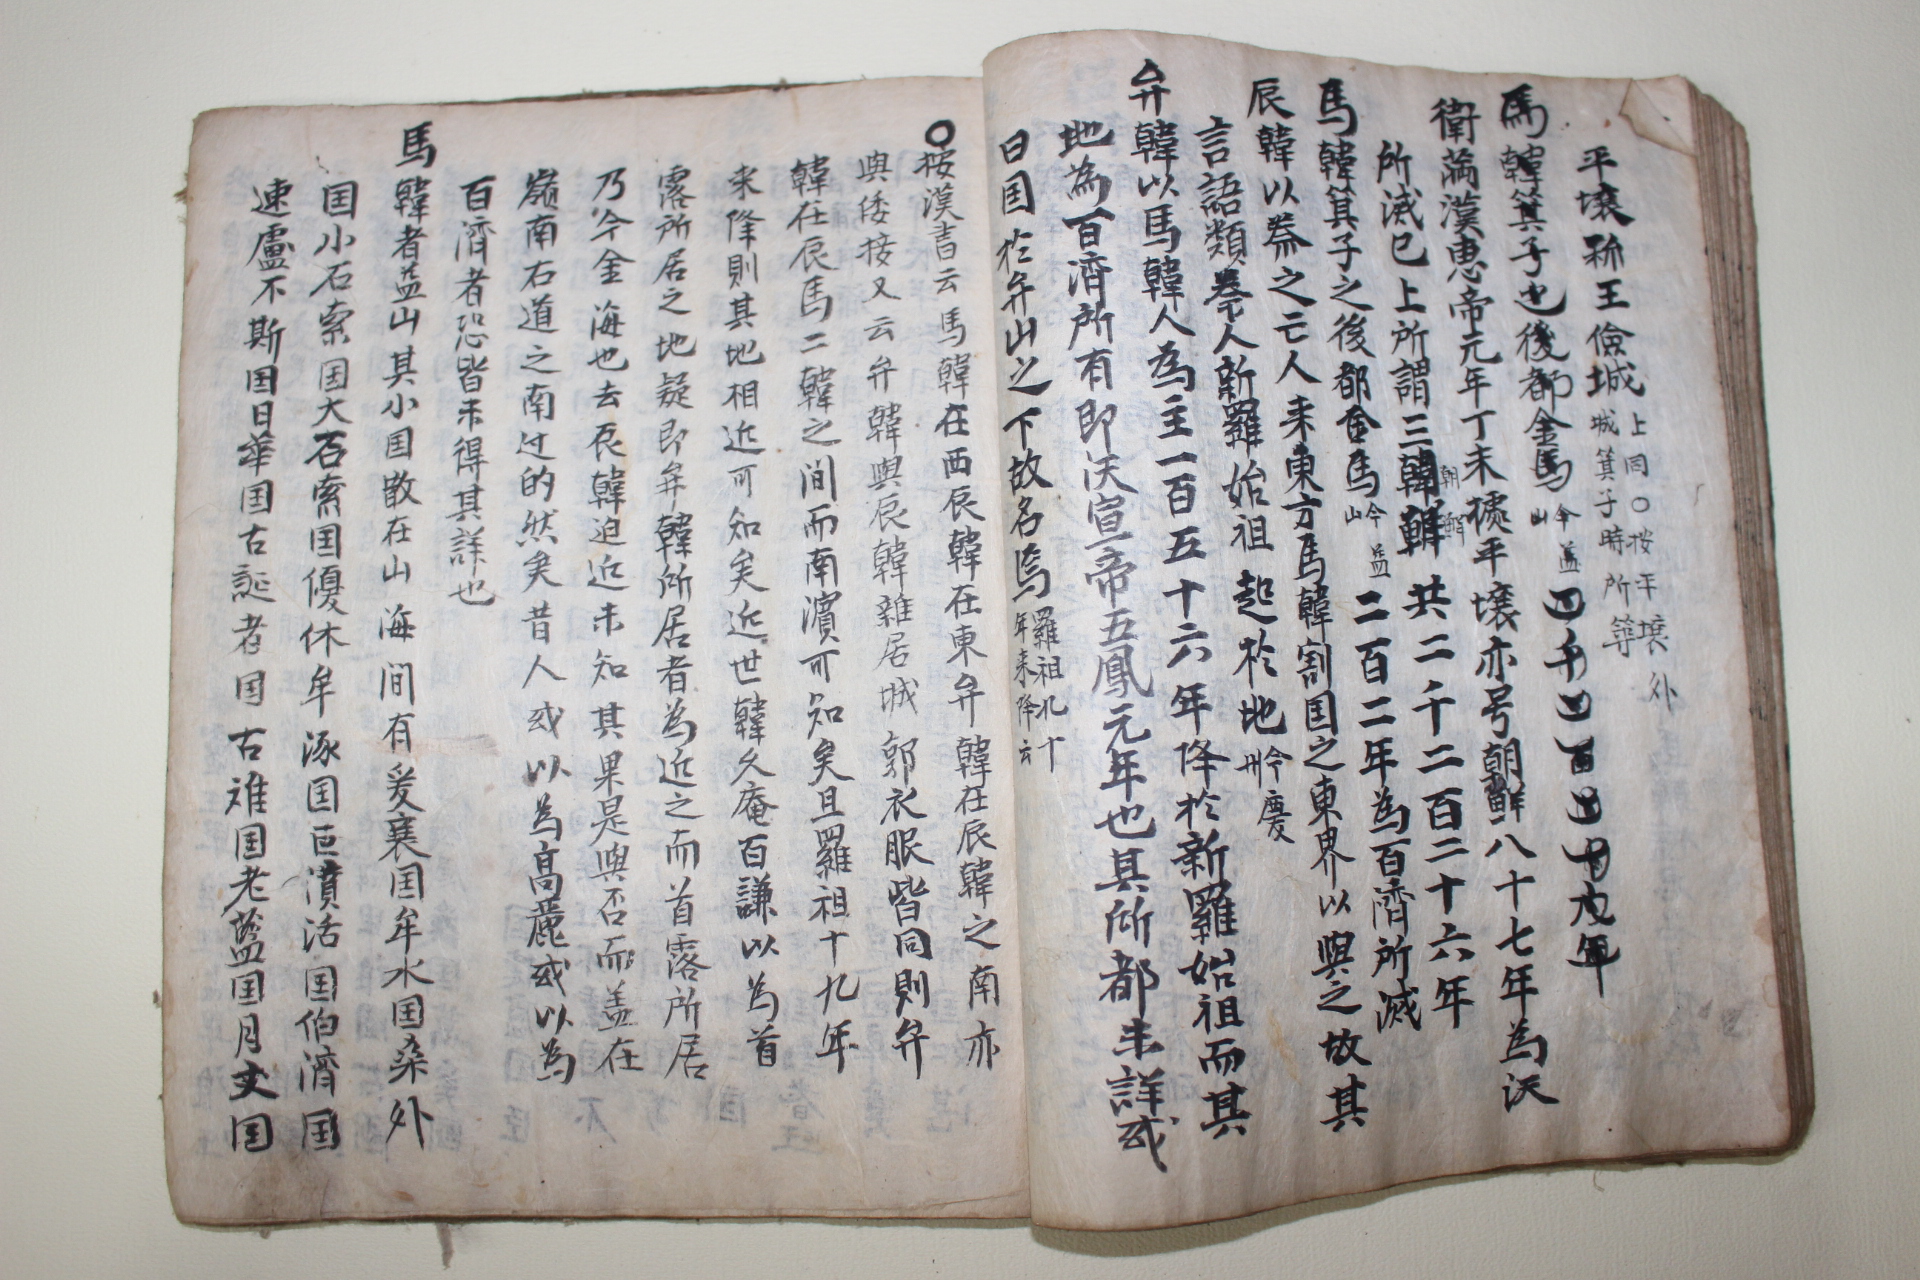 平壤称王儉城上同〇按平壤外城箕子時所築
馬韓箕子也後都金馬今益山
衛滿漢惠帝元年丁未據平壤亦号朝鮮八十七年為沃
所滅已上所謂三朝鮮共二千二百二十六年
馬韓箕子之後都金馬今益山二百二年為百濟所滅
辰韓以秦之亡人来東方馬韓割国之東界以與之故其
言語類秦人新羅始祖起於地今慶州
弁韓以馬韓人為主一百五十六年降於新羅始祖而其
地為百濟所有即沃宣帝五鳳元年也其所都未詳或
曰国於弁山之下故名焉羅祖九十年来降云
〇按漢書云馬韓在西辰韓在東弁韓在辰韓之南亦
與倭接又云弁韓與辰韓雜居城郭衣服皆同則弁
韓在辰馬二韓之間而南濱可知矣且羅祖十九年
来降則其地相近可知矣近世韓久庵百謙以為首
露所居之地疑即弁韓所居者為近之而首露所居
乃今金海也去辰韓迫近未知其果是與否而盖在
嶺南右道之南过的然矣昔人或以為高麗或以為
百濟者恐皆未得其詳也
馬韓者益山其小国散在山海間有爰襄国牟水国桑外
国小石索国大石索国優休牟涿国臣濆活国伯濟国
速盧不斯国日華国古誕者国古離国老藍国月支国